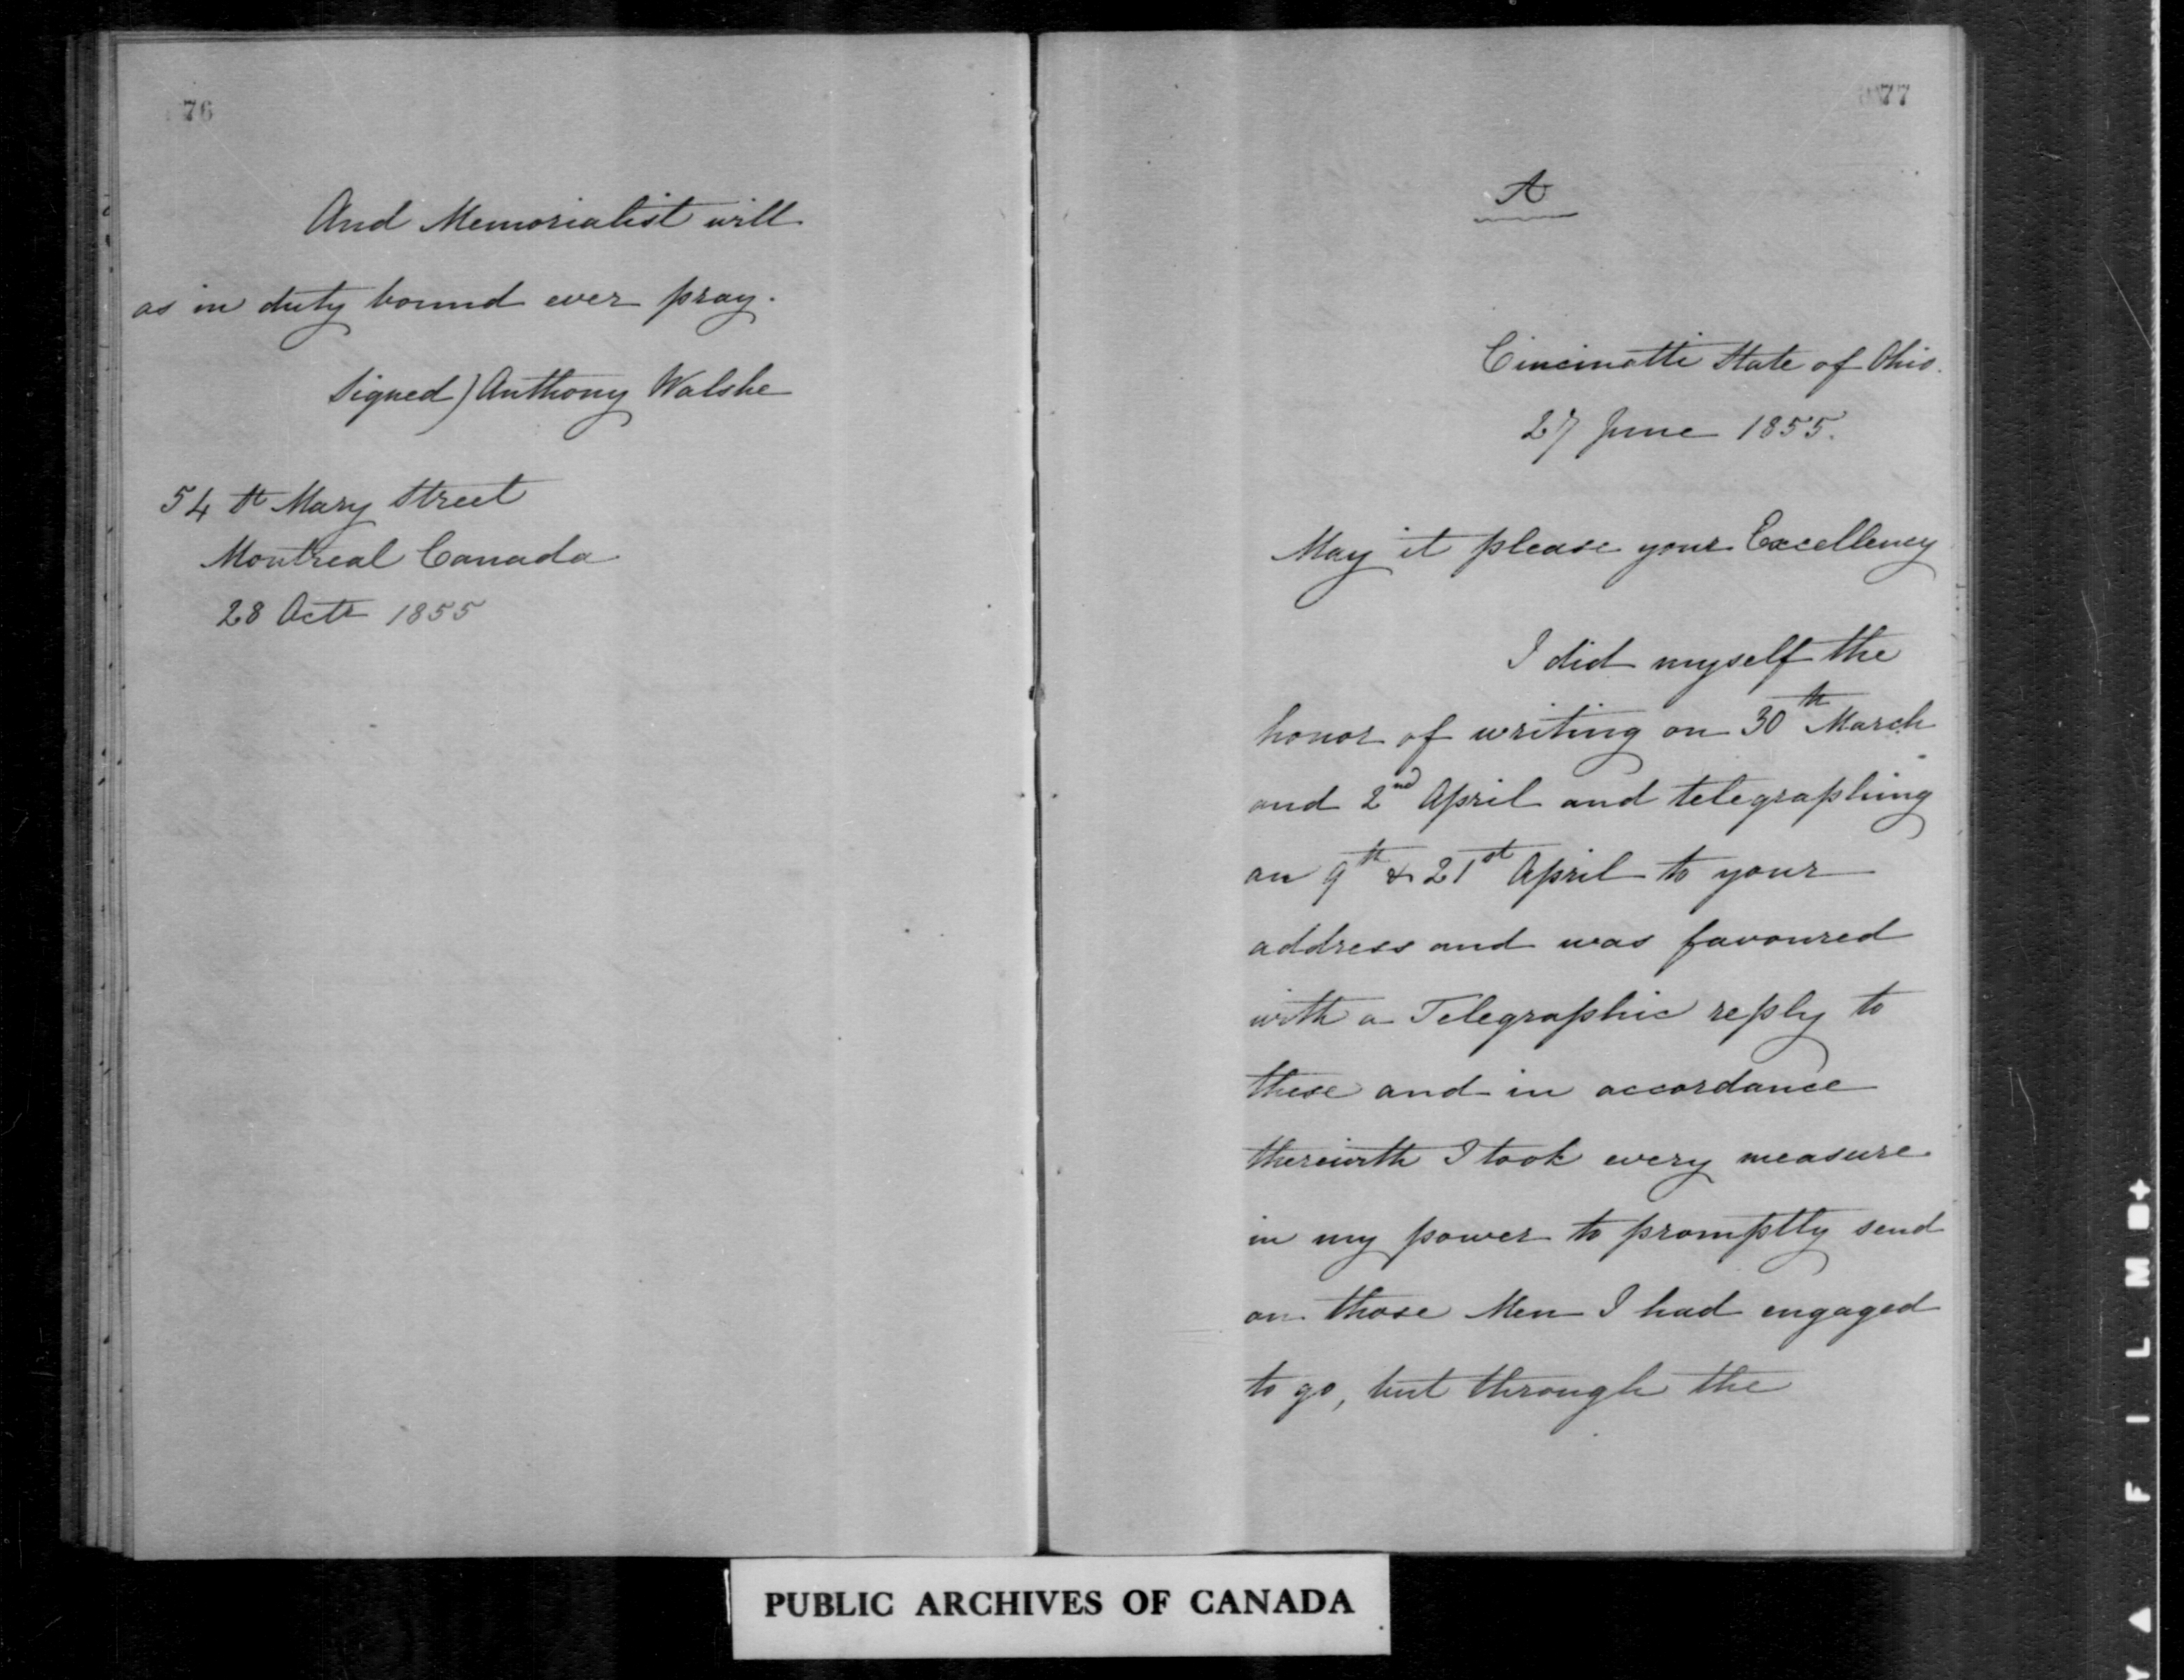 76
And Memorialist will
as in duty bound ever pray.
Signed) Anthony Walshe
54 St Mary Street
Montreal Canada
28 Octr 1855
77
A
Cincinatti State of Ohio.
27 June 1855.
May it please your Excellency
I did myself the
honor of writing on 30th March
and 2nd April and telegraphing
on 9th & 21st April to your
address and was favoured
with a Telegraphic reply to
these and in accordance
therewith I took every measure
in my power to promptly send
on those Men I had engaged
to go, but through the
PUBLIC ARCHIVES OF CANADA
F I L M